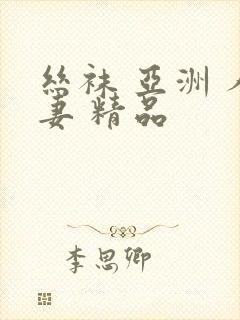 絲袜 亞洲 人
妻 精品
李思卿